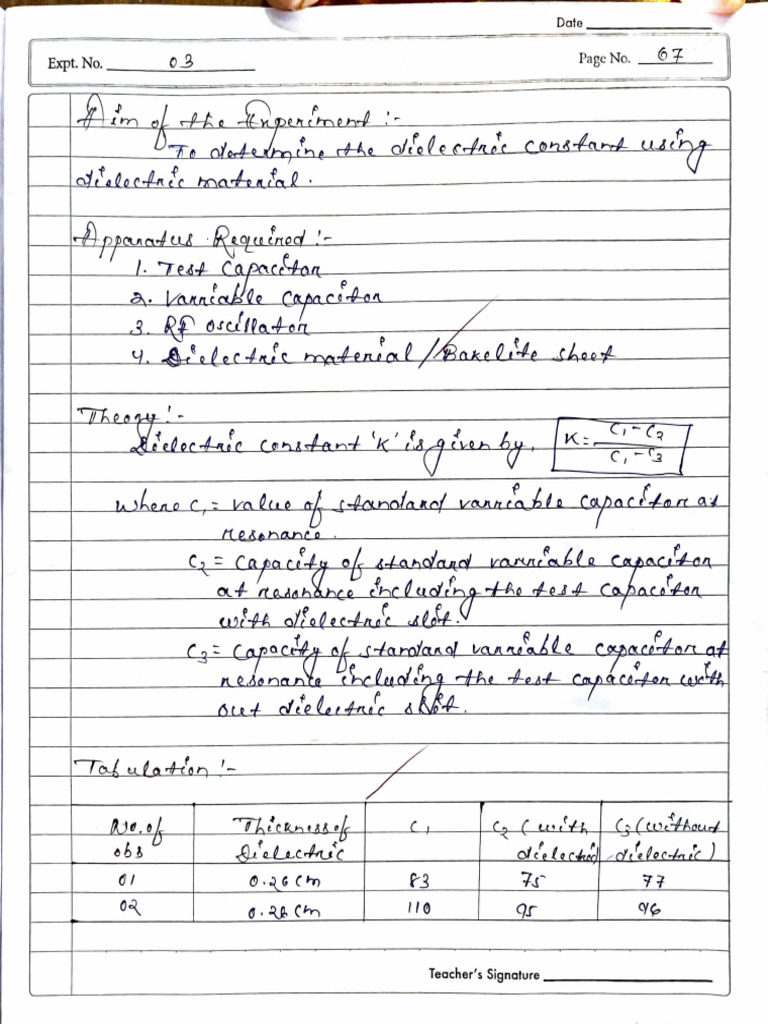 Date
Expt. No. 03
Page No. 67
Aim of the Experiment :-
To determine the dielectric constant using
dielectric material.
Apparatus Required :-
1. Test Capacitor
2. Varriable capacitor
3. RF oscillator
4. Dielectric material / Bakelite sheet
Theory :-
Dielectric constant 'K' is given by, K = C1 - C2 / C1 - C3
where C1 = value of standard varriable capacitor at
resonance.
C2 = Capacity of standard varriable capacitor
at resonance including the test capacitor
with dielectric slot.
C3 = Capacity of standard varriable capacitor at
resonance including the test capacitor with
out dielectric slot.
Tabulation :-
No. of obs | Thickness of Dielectric | C1 | C2 (with dielectric) | C3 (without dielectric)
01 | 0.26 cm | 83 | 75 | 77
02 | 0.26 cm | 110 | 95 | 96
Teacher's Signature